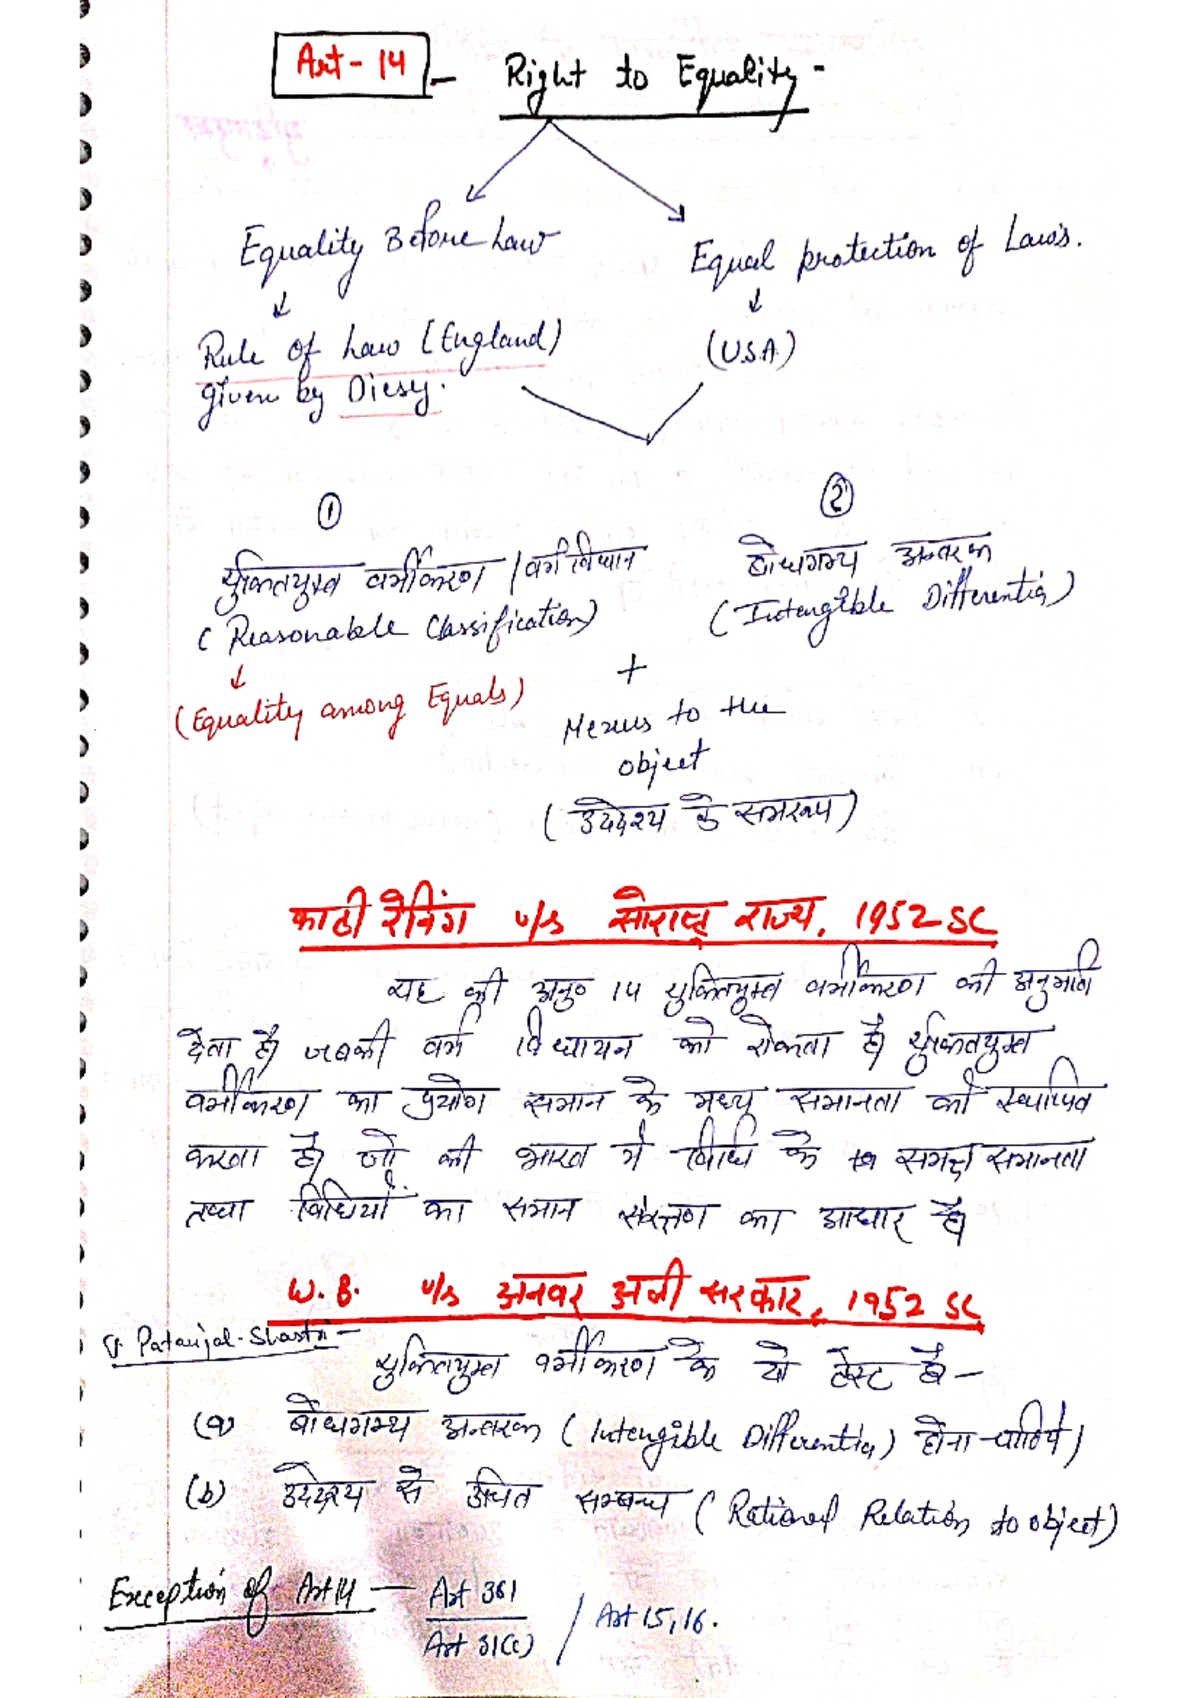 Art-14 - Right to Equality -
Equality Before Law
Equal protection of Laws.
Rule of Law (England)
given by Diesy.
(U.S.A)
①
②
युक्तियुक्त वर्गीकरण / वर्ग विधान
(Reasonable Classification)
(Equality among Equals)
बोधगम्य अन्तरक
(Intengible Differentia)
+
Nexus to the
object
(उद्देश्य के समरूप)
काठी रेनिंग v/s सौराष्ट्र राज्य, 1952 SC
यह की अनु० 14 युक्तियुक्त वर्गीकरण की अनुमति
देता है। जबकी वर्ग विधायन को रोकता है। युक्तियुक्त
वर्गीकरण का प्रयोग समान के मध्य समानता को स्थापित
करना है। जो की भारत में विधि के समक्ष समानता
तथा विधियों का समान संरक्षण का आधार है।
W.B. v/s अनवर अली सरकार, 1952 SC
Patanjal-Shastri -
युक्तियुक्त वर्गीकरण के दो टेस्ट है -
(a) बोधगम्य अन्तरक (Intengible Differentia) होना चाहिये।
(b) उद्देश्य से उचित सम्बन्ध (Rational Relation to object)
Exception of Art 14 - Art 361 / Art 15, 16.
Art 31(c)